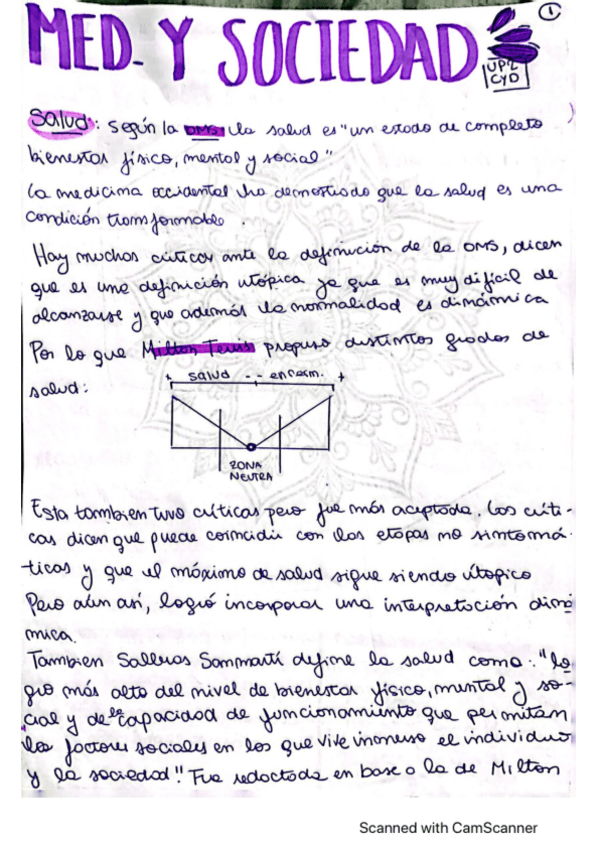 MED. Y SOCIEDAD
1
UP2
CYD
Salud: según la OMS, la salud es "un estado de completo
bienestar físico, mental y social"
La medicima occidental ha demostrado que la salud es una
condición transformable.
Hay muchos críticos ante la definición de la OMS, dicen
que es una definición utópica ya que es muy difícil de
alcanzarse y que además la normalidad es dinámica
Por lo que Milton Terris propuso distintos grados de
salud:
+ salud - - enferm. +
ZONA
NEUTRA
Esta tambien tuvo críticas pero fue más aceptada. Los críti-
cas dicen que puede coincidir con las etapas no sintomá-
ticas y que el máximo de salud sigue siendo útopico
Pero aún así, logró incorporar una interpretación diná
mica.
Tambien Salleras Sanmartí define la salud como: "lo
gro más alto del nivel de bienestar físico, mental y so-
cial y de la capacidad de funcionamiento que permitan
los factores sociales en los que vive inmerso el individuo
y la sociedad". Fue redactada en base a la de Milton
Scanned with CamScanner